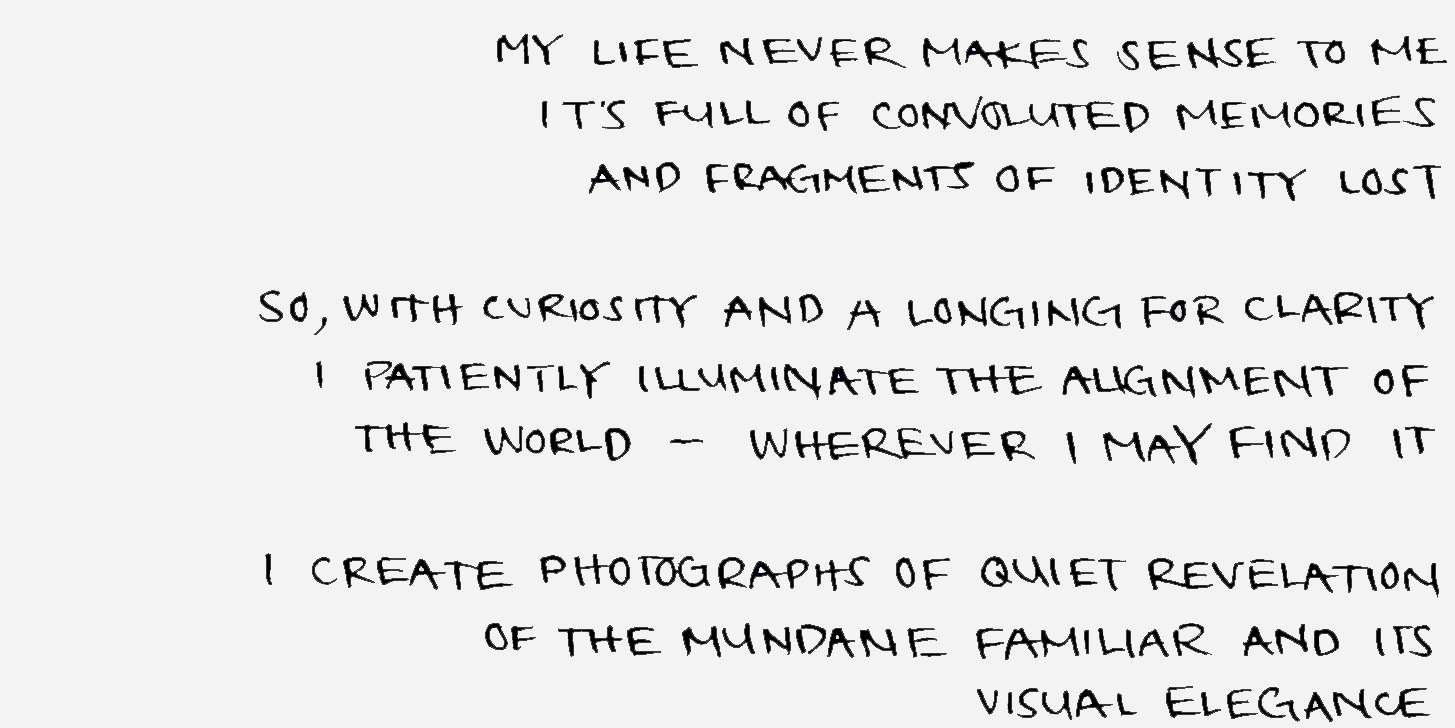 MY LIFE NEVER MAKES SENSE TO ME
IT'S FULL OF CONVOLUTED MEMORIES
AND FRAGMENTS OF IDENTITY LOST
SO, WITH CURIOSITY AND A LONGING FOR CLARITY
I PATIENTLY ILLUMINATE THE ALIGNMENT OF
THE WORLD – WHEREVER I MAY FIND IT
I CREATE PHOTOGRAPHS OF QUIET REVELATION
OF THE MUNDANE FAMILIAR AND ITS
VISUAL ELEGANCE